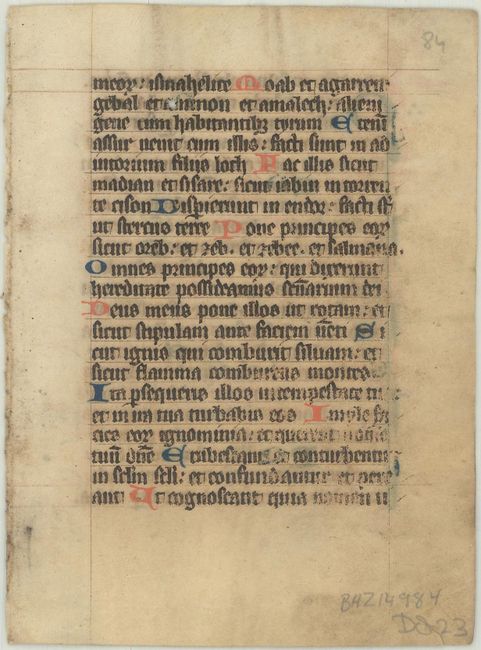 84
meoꝝ: ismahelite Moab et agarreni
gebal et ammon et amalech: alieni
gene cum habitantibꝫ tyrum Etenī
assur uenit cum illis: facti sunt in ad
iutorium filiis loth Fac illis sicut
madian et sisare: sicut iabin in torren
te cison Disperierunt in endor: facti sūt
ut stercus terre Pone principes eoꝝ
sicut oreb: et zeb. et zebee. et salmana.
Omnes principes eoꝝ: qui dixerunt
hereditate possideamus sctuarium dei
Deus meus pone illos ut rotam: et
sicut stipulam ante faciem uēti Si
cut ignis qui comburit siluam: et
sicut flamma comburens montes
Ita ꝑsequeris illos in tempestate tua:
et in ira tua turbabis eos Imple fa
cies eoꝝ ignominia: et querent nomē
tuū dn̄e Erubescant et conturbentur
in sclm scli: et confundantur et pere
ant Et cognoscant quia nomen ti
BHZ14984
DS23